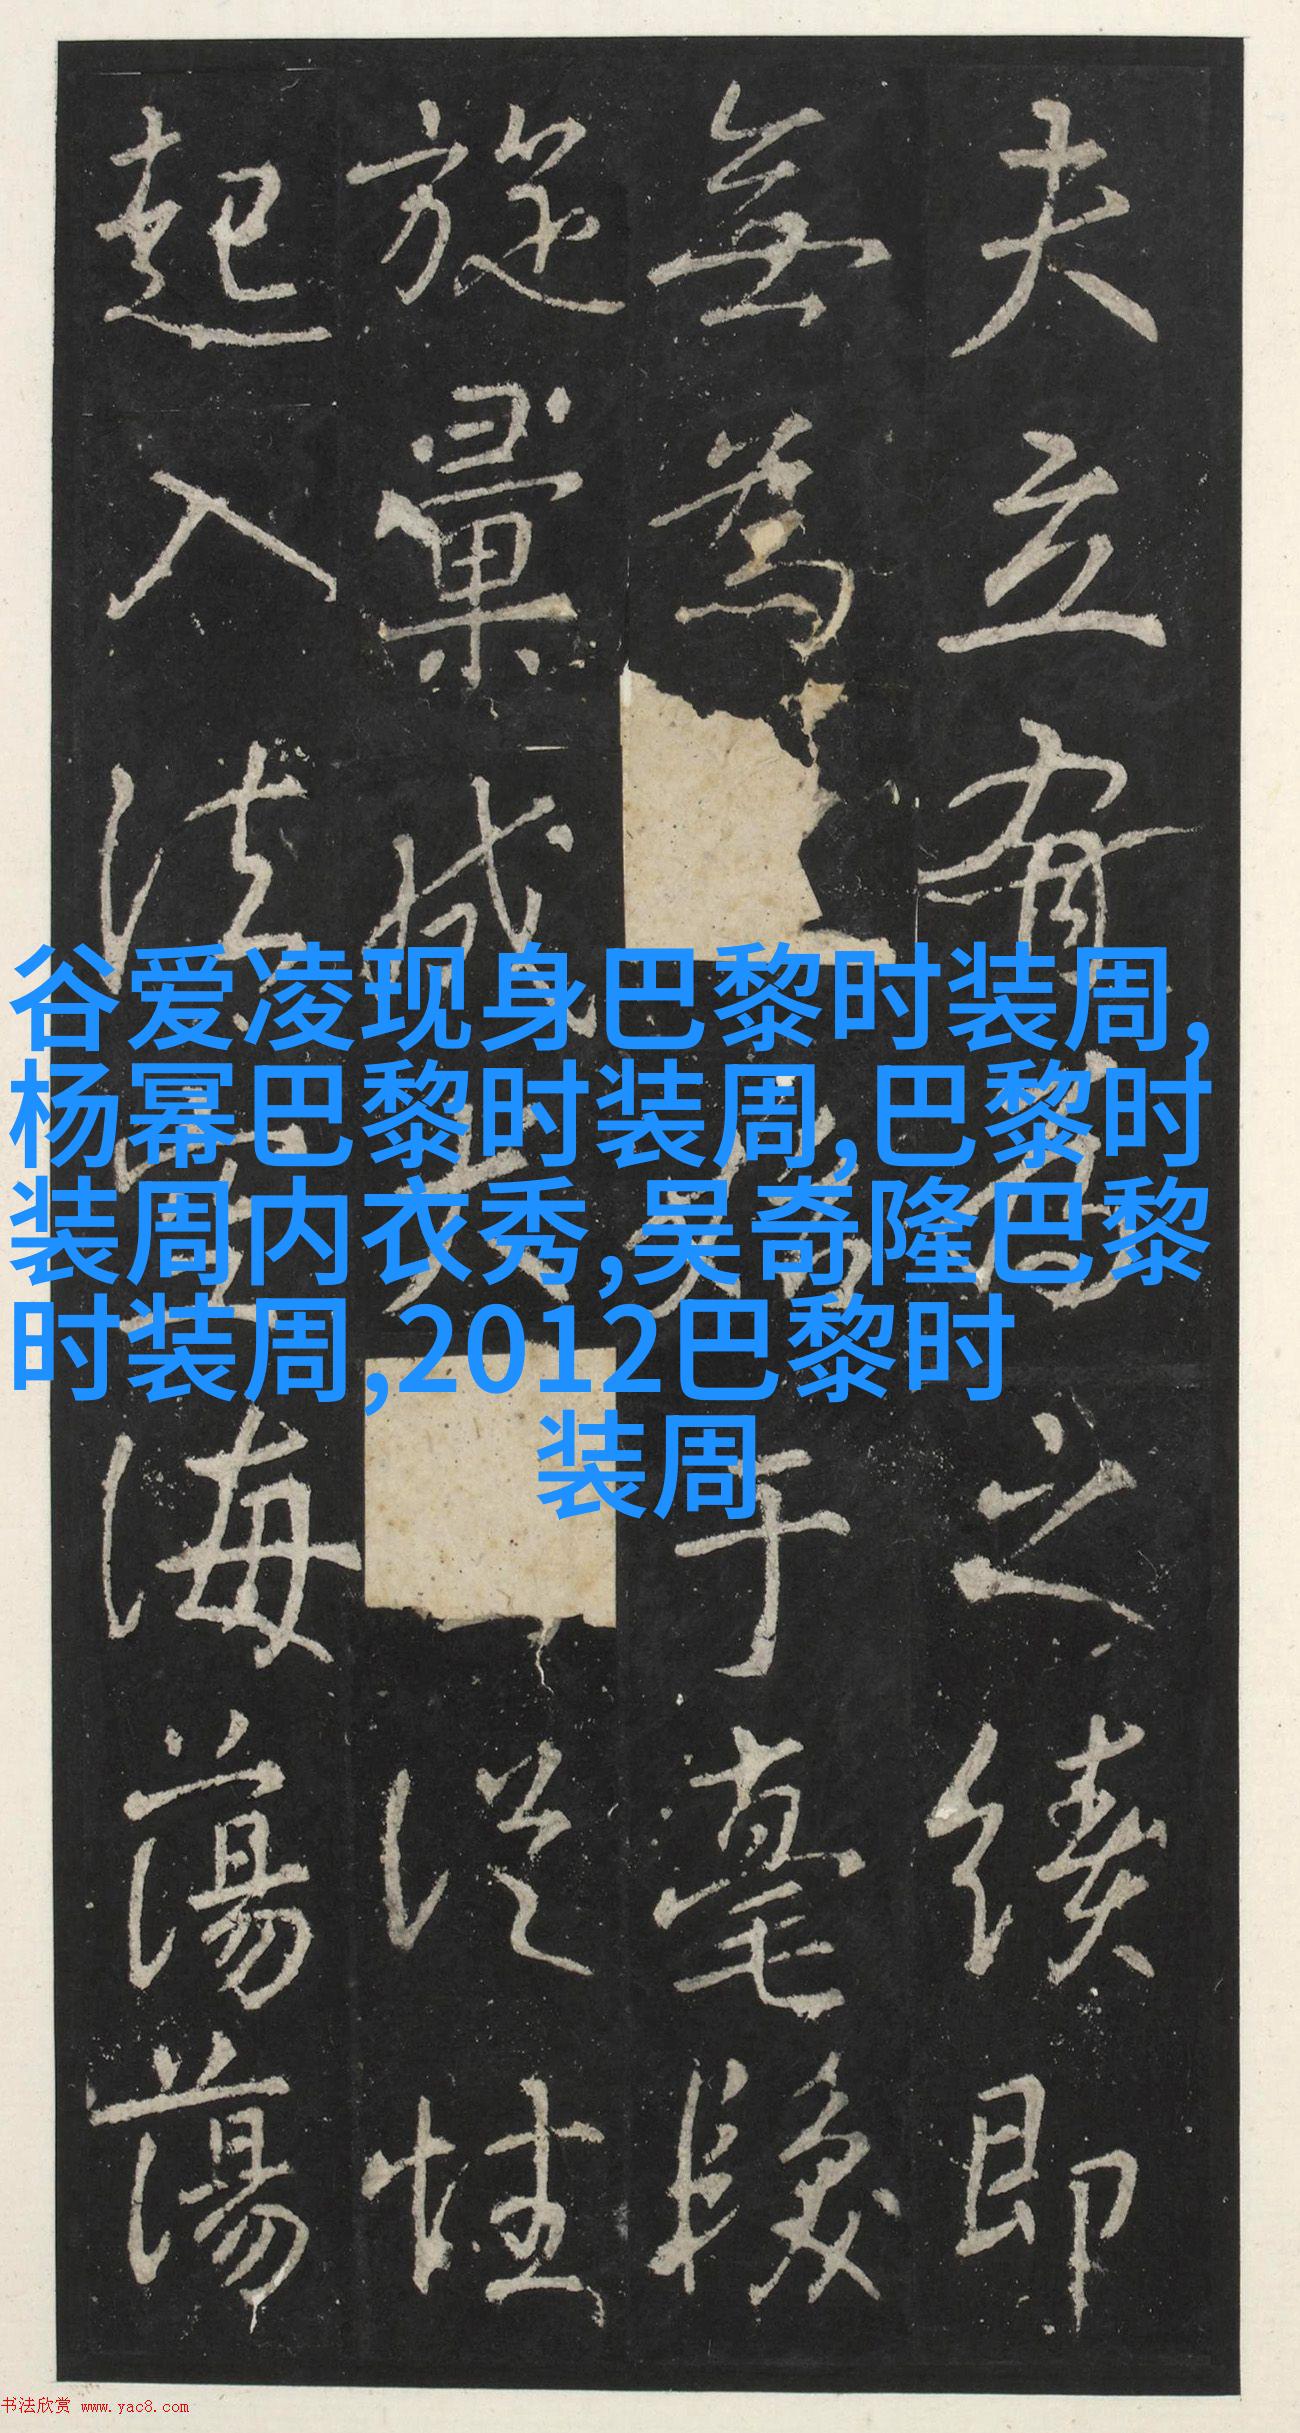 夫立有之績即
無為于毫髮
旋從性
起入法海蕩蕩
谷爱凌现身巴黎时装周,
杨幂巴黎时装周,巴黎时
装周内衣秀,吴奇隆巴黎
时装周,2012巴黎时
装周
书法欣赏 www.yac8.com